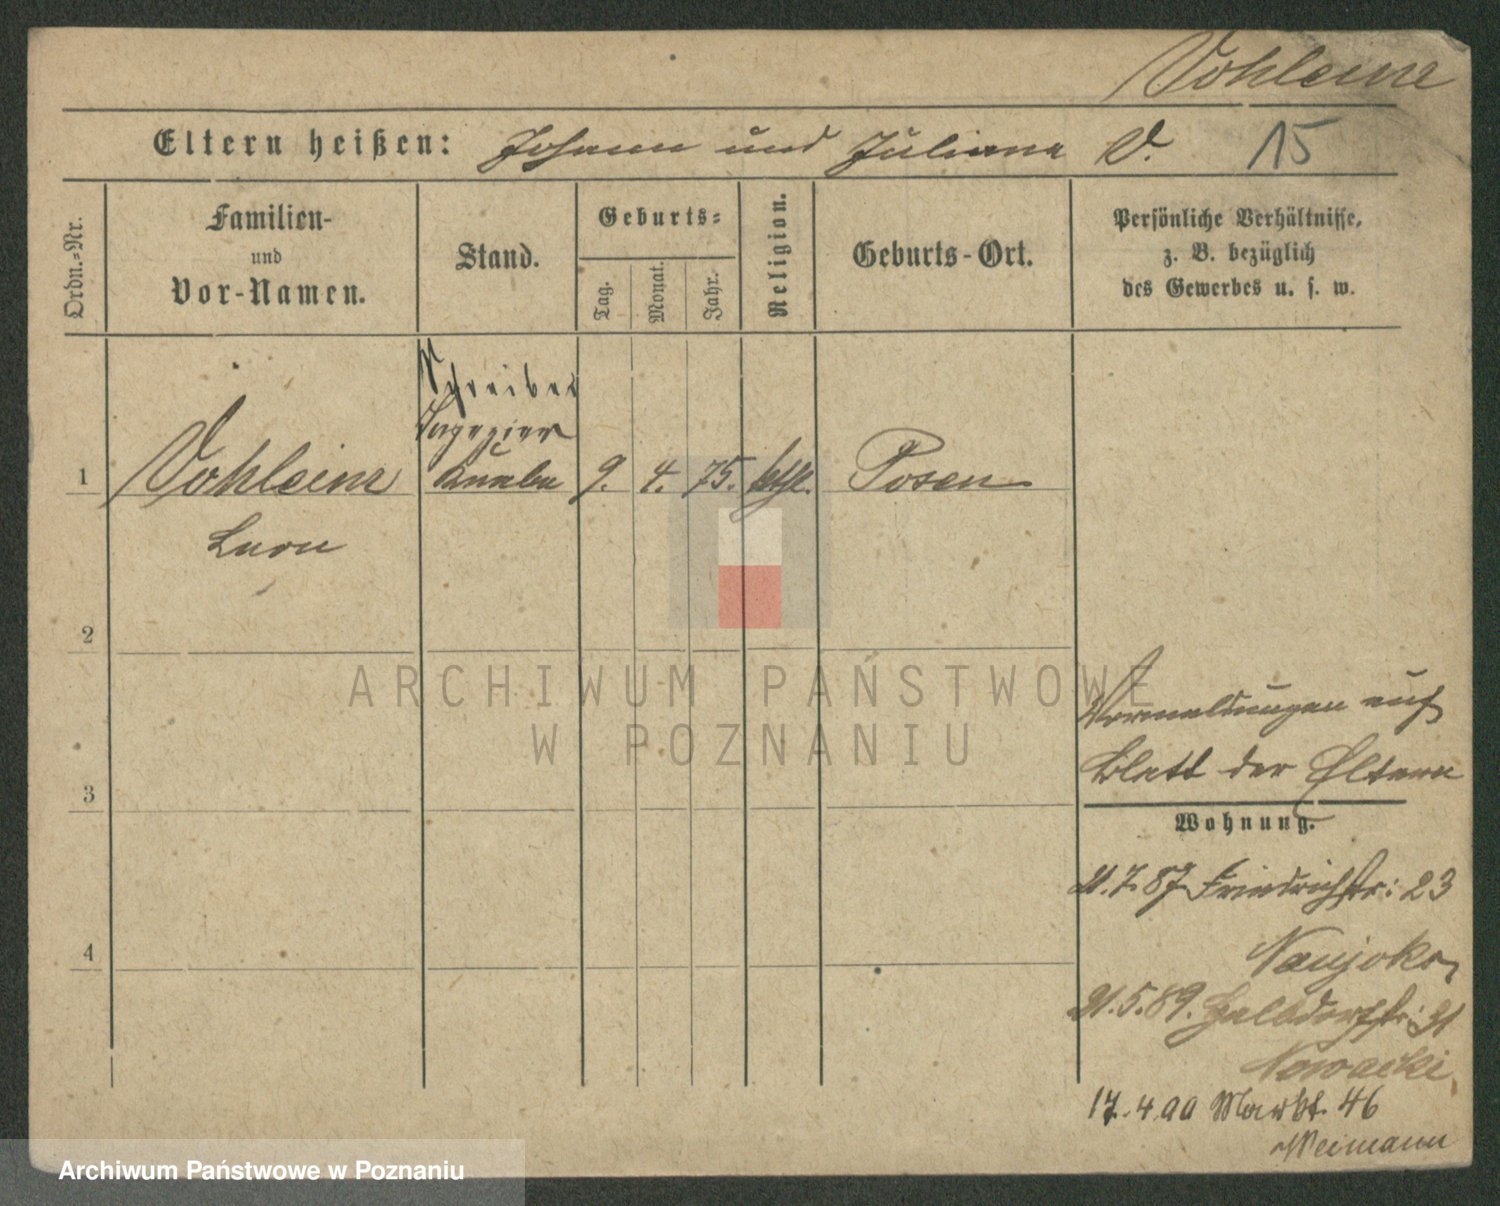 Vohleinz
Eltern heißen: Johann und Juliana V. 15
Ordn.-Nr.
Familien-
und
Vor-Namen.
Stand.
Geburts-
Tag.
Monat.
Jahr.
Religion.
Geburts-Ort.
Persönliche Verhältnisse,
z. B. bezüglich
des Gewerbes u. s. w.
Schreiber
Tapezier
1 Vohleinz Knabe 9. 4. 75. kthl. Posen
Leon
2
ARCHIWUM PAŃSTWOWE
W POZNANIU
Vormeldungen auf
Blatt der Eltern
3
Wohnung.
21.7.87 Friedrichstr: 23
4
Naujoks
21.5.89. Halbdorfstr: 31
Nowacki
17.4.90 Markt 46
Weimann
Archiwum Państwowe w Poznaniu